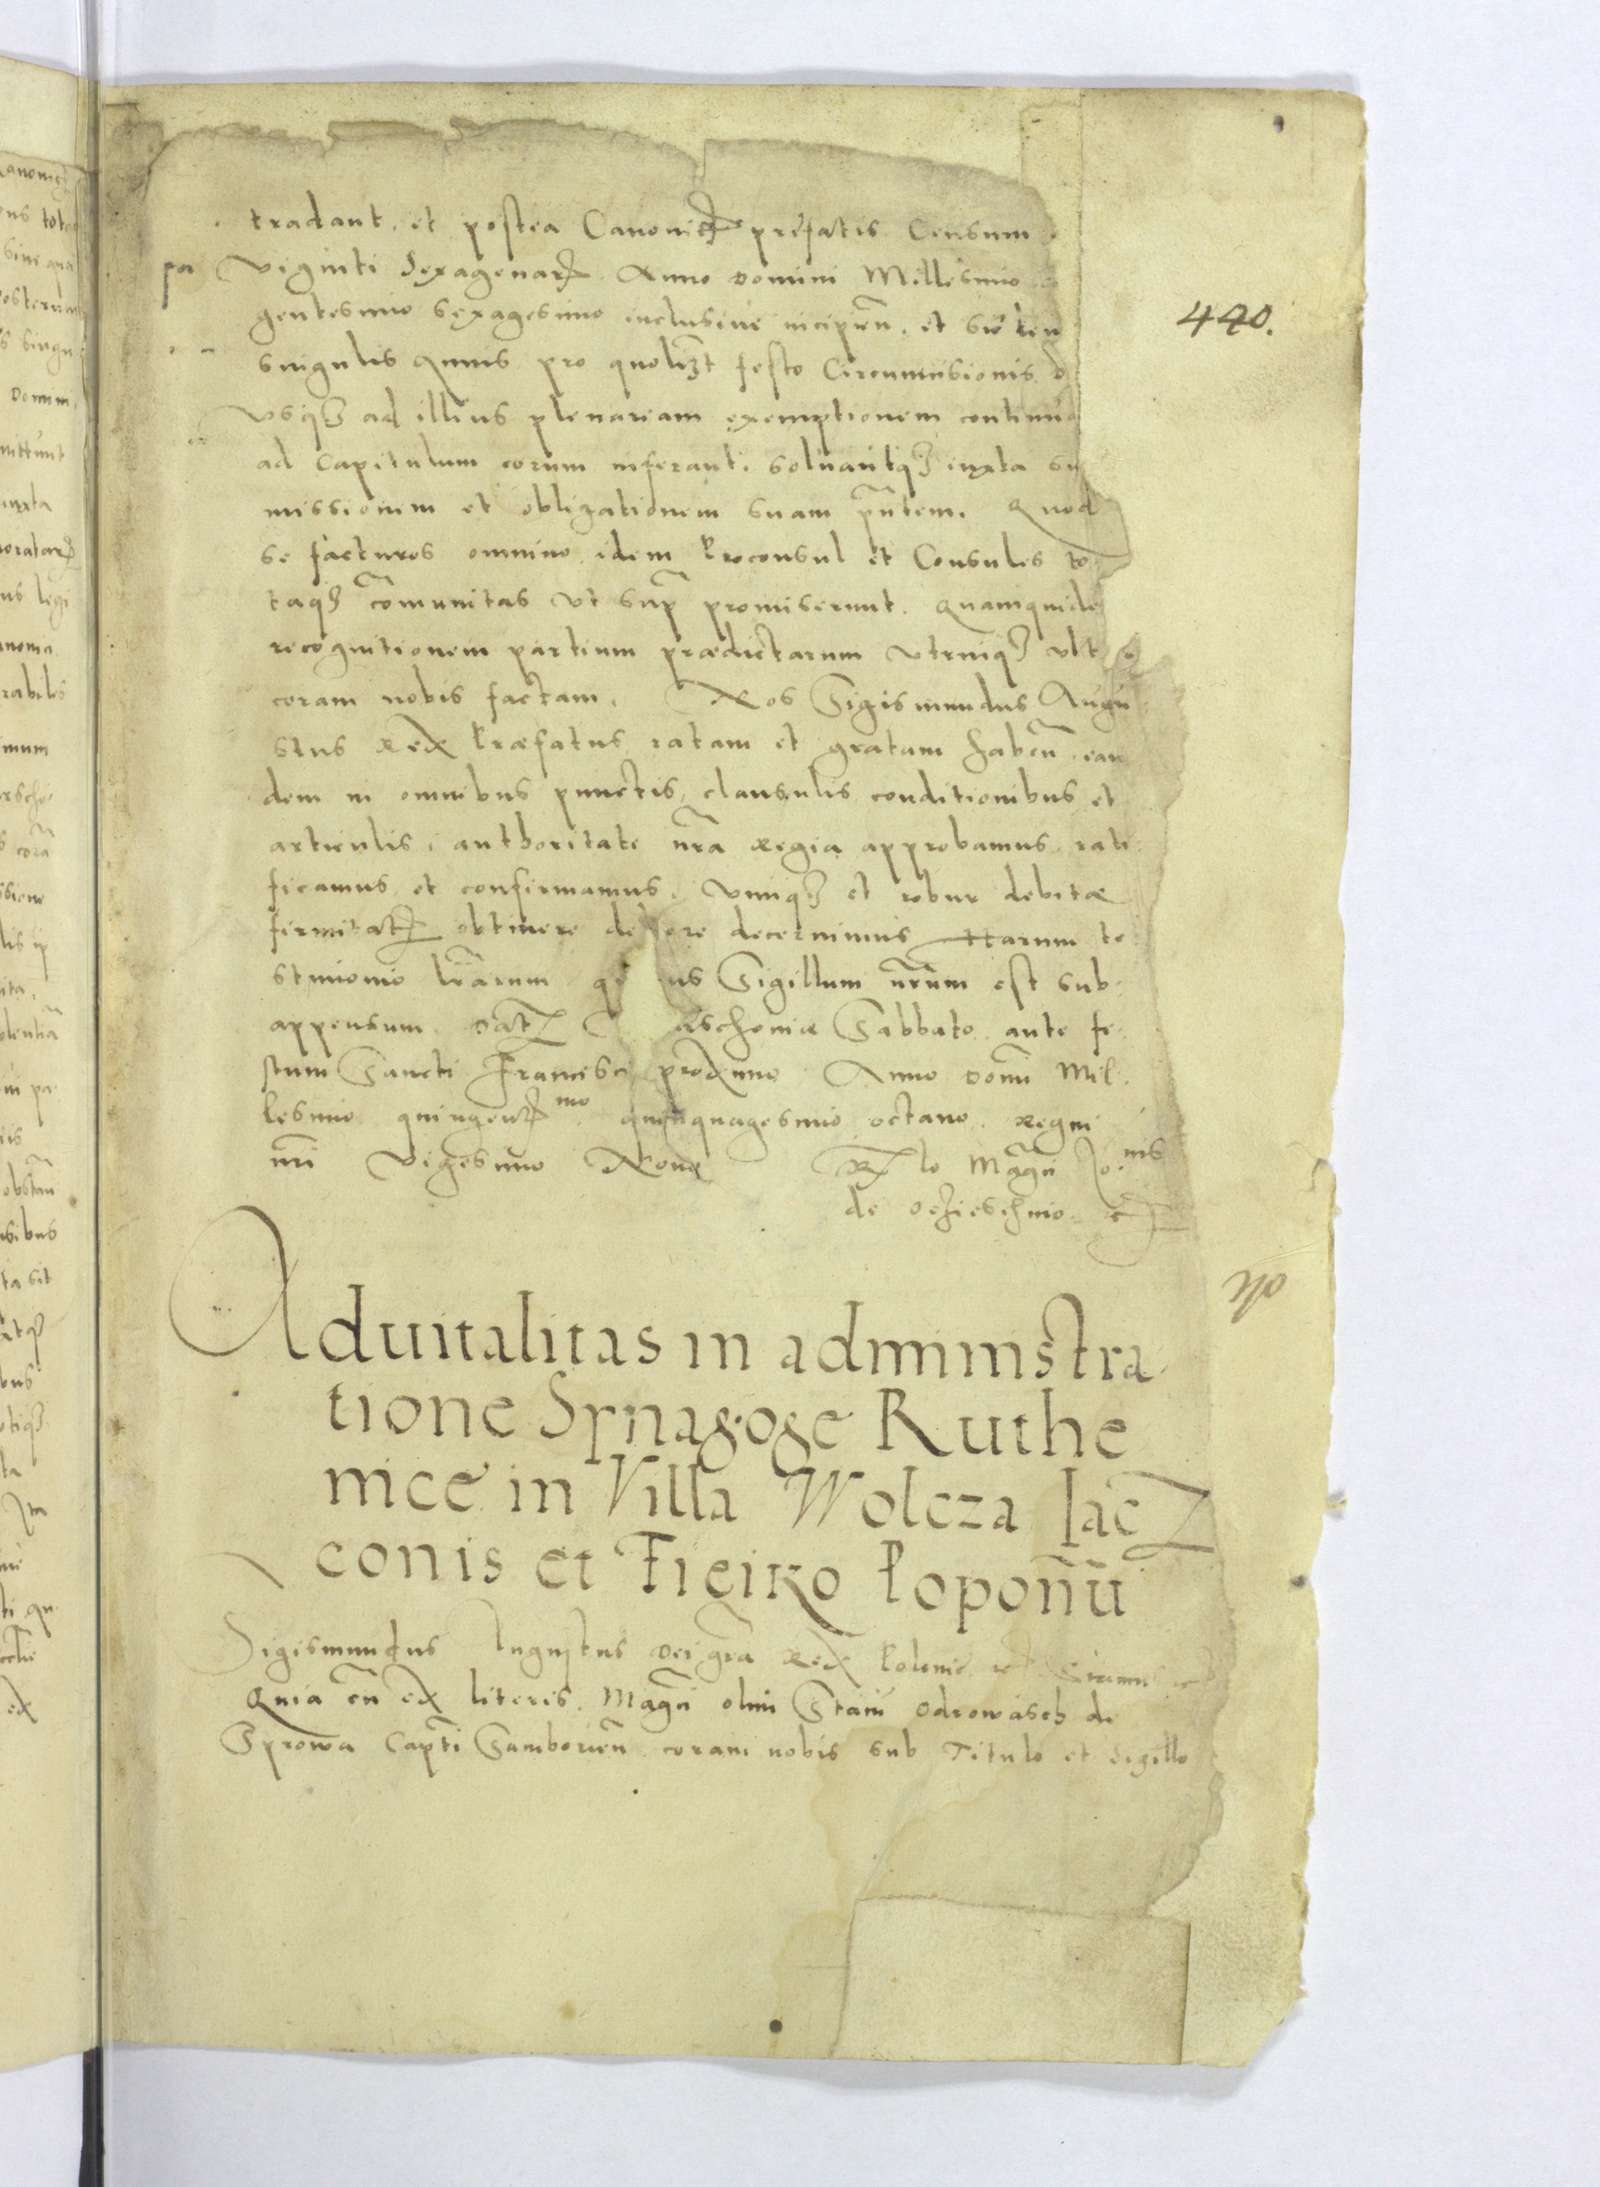 440.
tradant, et postea Canonicꝝ prefatis Censum
pa
Viginti Sexagenarꝝ Anno Domini Millesimo
gentesimo sexagesimo inclusive incipien̄. et sic
singulis annis pro quolibet festo Circumcisionis D
Usq̃ ad illius plenariam exemptionem continuo
ad Capitulum eorum inferant, solvantq̃ iuxta su
missionem et obligationem suam p̄ntem. Quod
se facturos omnino idem Proconsul et Consules to
taq̃ c̄omunitas ut sup̄ promiserunt. Quamquide
recognitionem partium prædictarum utrinq̃
coram nobis factam. Nos Sigismundus Augu
stus Rex Præfatus ratam et gratam haben̄ ean
dem in omnibus punctis, clausulis conditionibus et
articulis, authoritate n̄ra Regia approbamus rati
ficamus et confirmamus. Vimq̃ et robur debitæ
firmitatꝭ obtinere de ere decernimus Harum te
stimonio lr̄arum q us Sigillum n̄rum est sub
appensum. Datꝭ aschoniæ Sabbato ante fe
stum Sancti Francisci proximo Anno Domi Mil
lesimo quingenꝭmo quinquagesimo octavo. Regni
nri Vigesimo Nono Rꝭ lo Mag̃ci Jo.nis
de Oczieschino
Advitalitas in administra
tione Synagoge Ruthe
nice in Villa Wolcza Iac
conis et Fieiko Popon̄u
Sigismundus Augustus Dei gr̄a Rex Polonie
Quia cū ex literis Mag̃ci olim Stani Odrowasch de
Sprowa Capt̄i Samborien̄ coram nobis sub Titulo et Sigillo